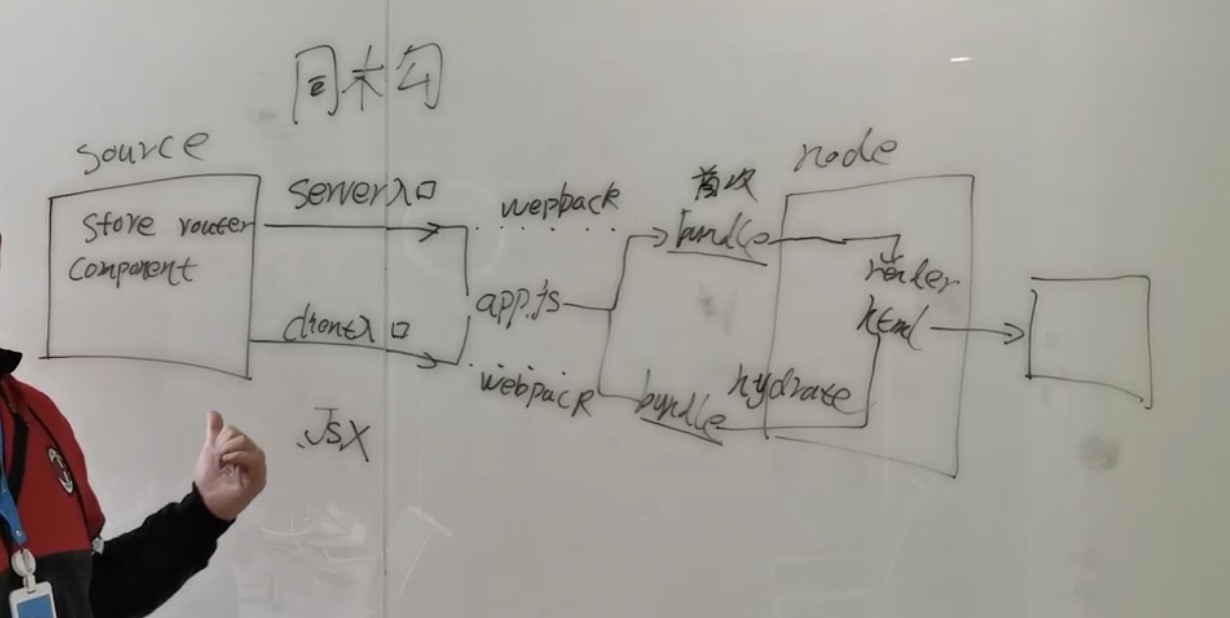 同未勾
source
store router
component
server入口
client入口
.JSX
wepback
app.js
webpack
首次
bundle
bundle
node
render
html
hydrate